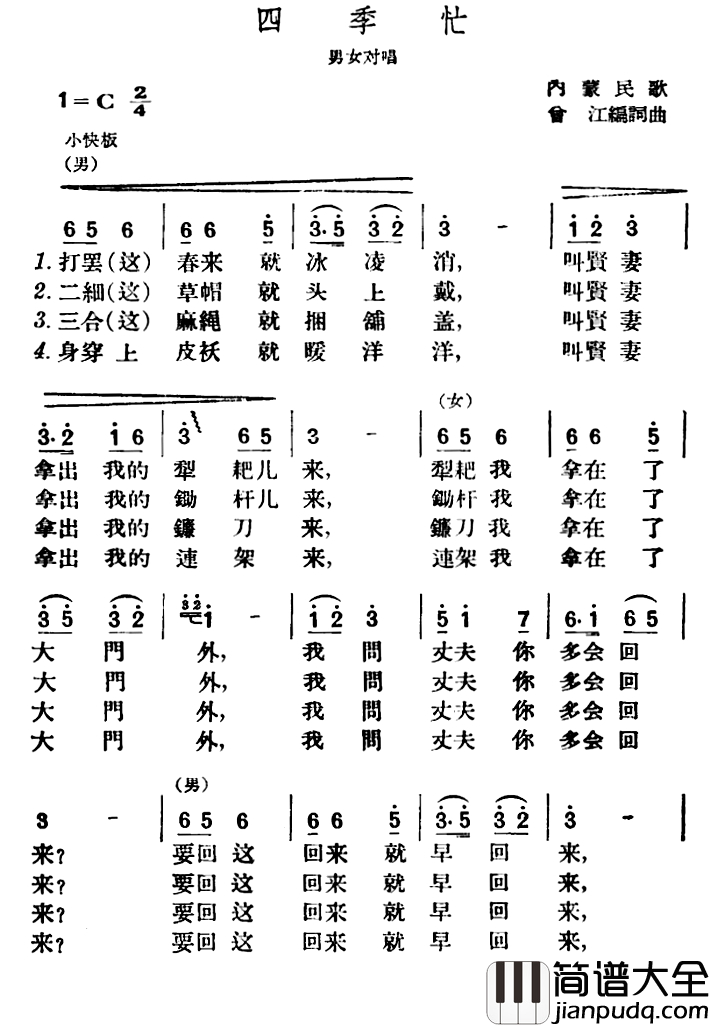 四季忙
男女对唱
1=C 2/4
内蒙民歌
曾江編詞曲
小快板
(男)
6 5 6 | 6 6 5 | 3·5 3 2 | 3 - | 1 2 3 |
1.打罢(这) 春来就冰凌消, 叫賢妻
2.二細(这) 草帽就头上戴, 叫賢妻
3.三合(这) 麻繩就捆舖盖, 叫賢妻
4.身穿上皮袄就暖洋洋, 叫賢妻
(女)
3·2 1 6 | 3 6 5 | 3 - | 6 5 6 | 6 6 5 |
拿出我的犁耙儿来, 犁耙我拿在了
拿出我的鋤杆儿来, 鋤杆我拿在了
拿出我的鐮刀来, 鐮刀我拿在了
拿出我的連架来, 連架我拿在了
3 5 3 2 | 3 2 1 - | 1 2 3 | 5 1 7 | 6·1 6 5 |
大門外, 我問丈夫你多会回
大門外, 我問丈夫你多会回
大門外, 我問丈夫你多会回
大門外, 我問丈夫你多会回
(男)
3 - | 6 5 6 | 6 6 5 | 3·5 3 2 | 3 - |
来? 要回这回来就早回来,
来? 要回这回来就早回来,
来? 要回这回来就早回来,
来? 要回这回来就早回来,
简谱大全
jianpudq.com